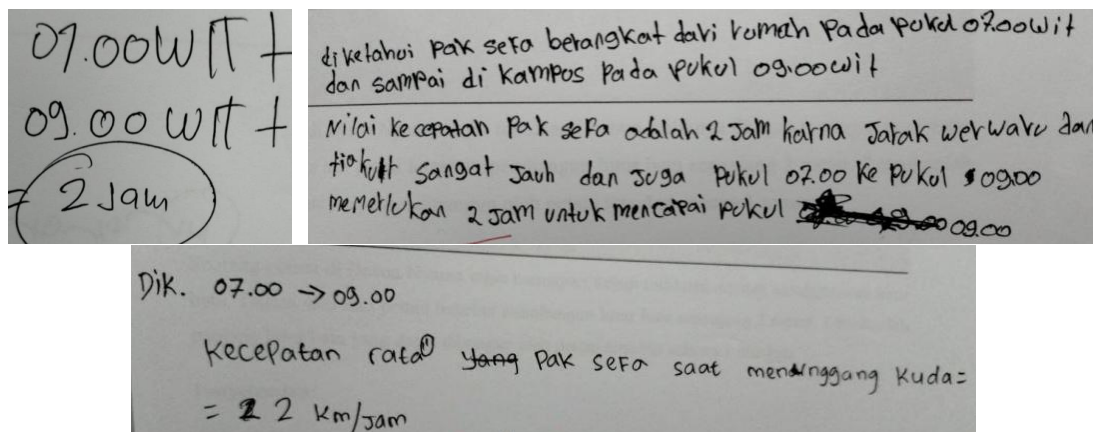 07.00 WIT +
09.00 WIT +
= 2 Jam
diketahui Pak Sefa berangkat dari rumah Pada Pukul 07.00 wit
dan sampai di Kampos Pada Pukul 09.00 wit
Nilai kecepatan Pak Sefa adalah 2 Jam karna Jarak werwaru dan
tiakur sangat Jauh dan Juga Pukul 07.00 Ke Pukul 09.00
memerlukan 2 Jam untuk mencapai Pukul 09.00
Dik. 07.00 → 09.00
Kecepatan rata" yang Pak Sefa saat menunggang Kuda =
= 2 2 Km/Jam